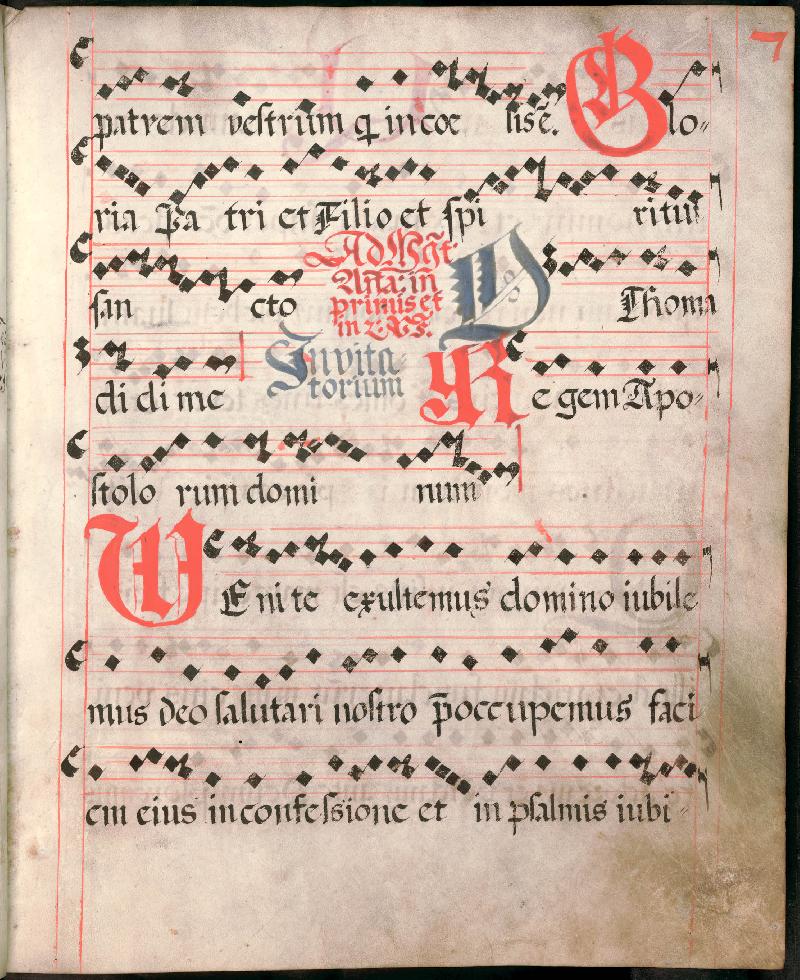 7
patrem vestrum q̄ in cœ lis ē. Glo-
ria Pa tri et Filio et spi ritui
san cto Ad Mgt. Aña: in primis et in 2. V̄s. D Thoma
di di me Invita- torium Regem Apo-
stolo rum domi num
VE ni te exultemus domino iubile
mus deo salutari nostro p̄occupemus faci
em eius in confessione et in psalmis iubi-